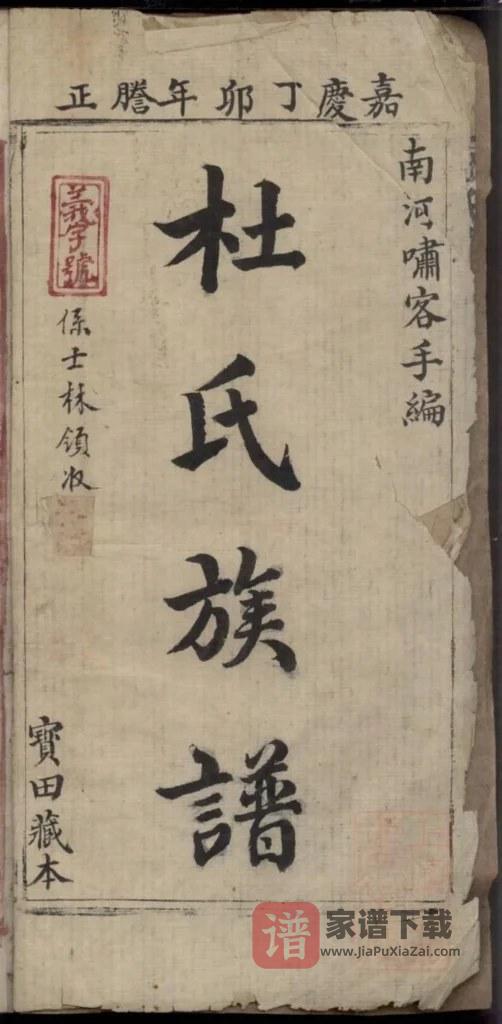 嘉慶丁卯年謄正
南河嘯客手編
杜氏族譜
義字號
係士林領收
寶田藏本
谱
家谱下载
www.JiaPuXiaZai.com